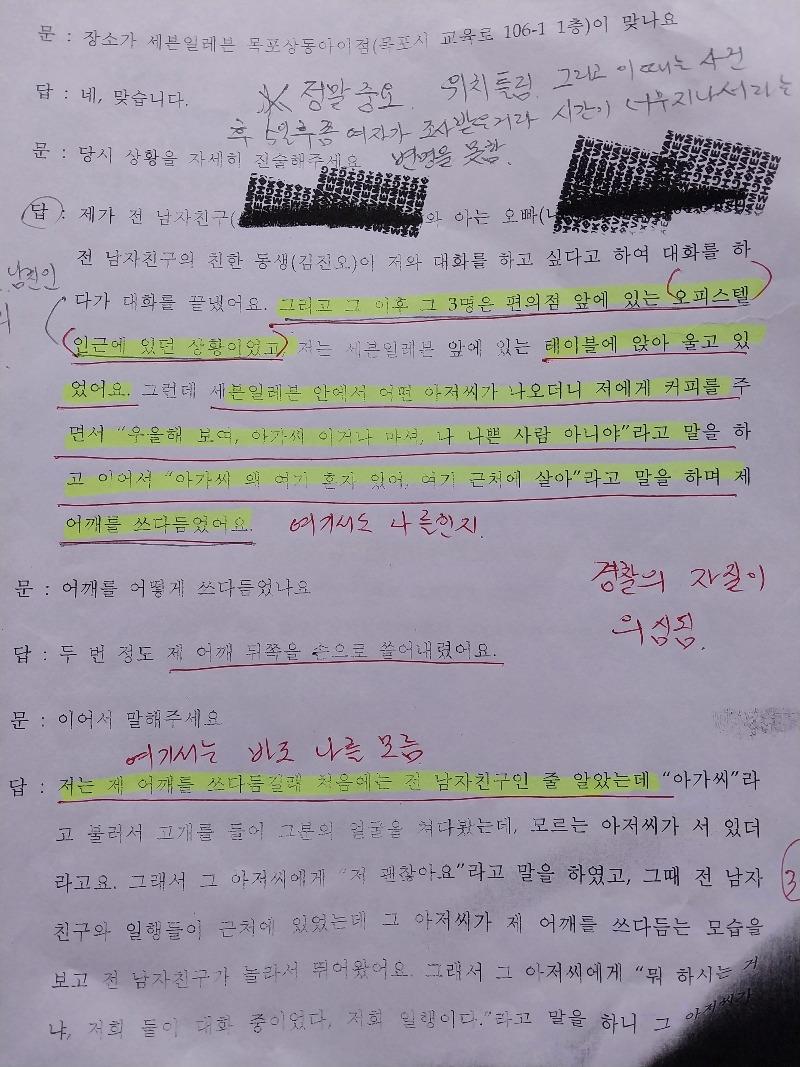 문 : 장소가 세븐일레븐 목포상동아이점(목포시 교육로 106-1 1층)이 맞나요
답 : 네, 맞습니다.
※ 정말 중요. 위치 틀림. 그리고 이때는 사건
후 5일후쯤 여자가 조사받은거라 시간이 너무지나서라는
변명을 못함.
문 : 당시 상황을 자세히 진술해주세요
답 : 제가 전 남자친구( 와 아는 오빠(
전 남자친구의 친한 동생(김진오)이 저와 대화를 하고 싶다고 하여 대화를 하
다가 대화를 끝냈어요. 그리고 그 이후 그 3명은 편의점 앞에 있는 오피스텔
인근에 있던 상황이었고 저는 세븐일레븐 앞에 있는 테이블에 앉아 울고 있
었어요. 그런데 세븐일레븐 안에서 어떤 아저씨가 나오더니 저에게 커피를 주
면서 “우울해 보여, 아가씨 이거나 마셔, 나 나쁜 사람 아니야”라고 말을 하
고 이어서 “아가씨 왜 여기 혼자 있어, 여기 근처에 살아”라고 말을 하며 제
어깨를 쓰다듬었어요.
여기서도 나를인지.
문 : 어깨를 어떻게 쓰다듬었나요
경찰의 자질이
의심됨.
답 : 두 번 정도 제 어깨 뒤쪽을 손으로 쓸어내렸어요.
문 : 이어서 말해주세요
여기서는 바로 나를 모름
답 : 저는 제 어깨를 쓰다듬길래 처음에는 전 남자친구인 줄 알았는데 “아가씨”라
고 불러서 고개를 들어 그분의 얼굴을 쳐다봤는데, 모르는 아저씨가 서 있더
라고요. 그래서 그 아저씨에게 “저 괜찮아요”라고 말을 하였고, 그때 전 남자
3
친구와 일행들이 근처에 있었는데 그 아저씨가 제 어깨를 쓰다듬는 모습을
보고 전 남자친구가 놀라서 뛰어왔어요. 그래서 그 아저씨에게 “뭐 하시는 거
냐, 저희 둘이 대화 중이었다, 저희 일행이다.”라고 말을 하니 그 아저씨가